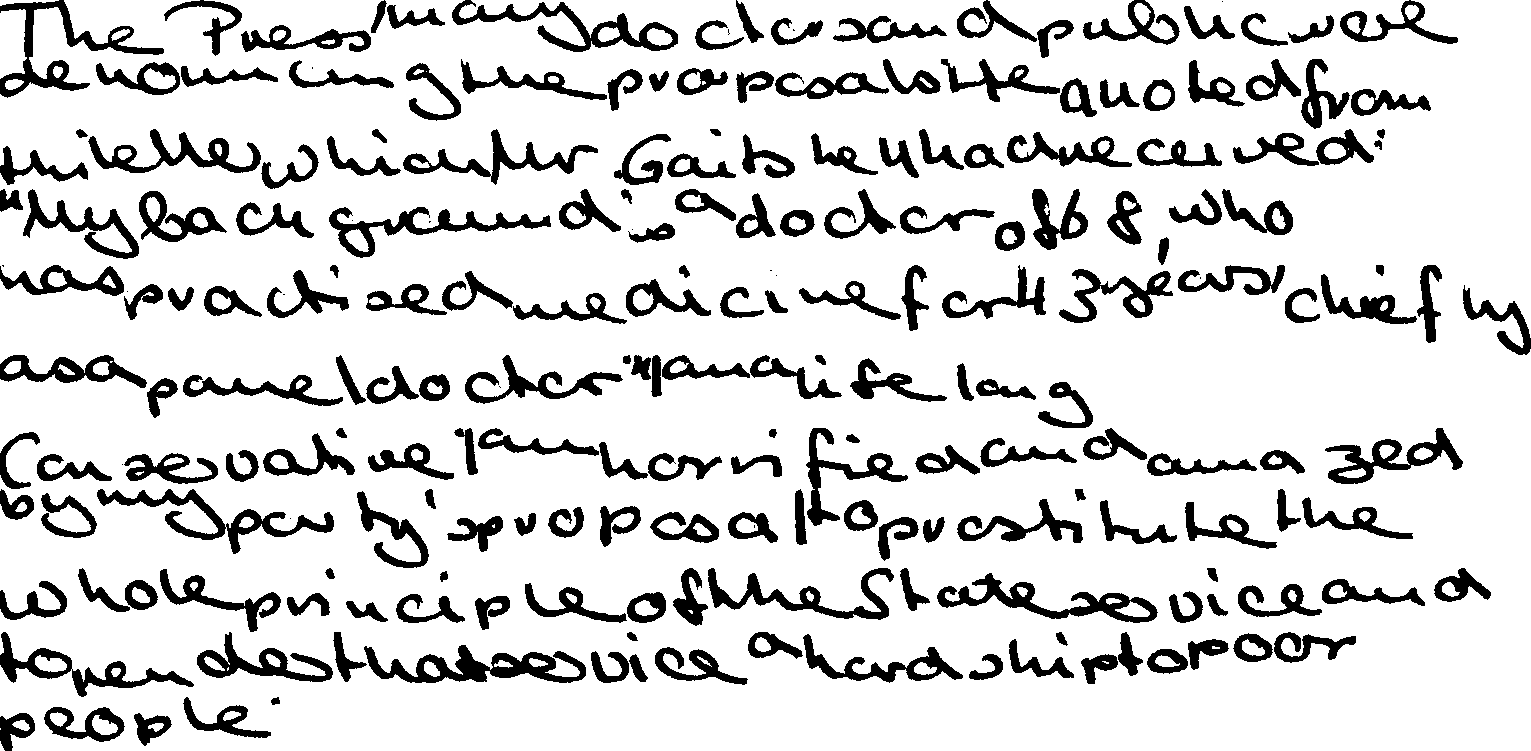 The Press, many doctors and public were
denouncing the proposals. He quoted from
this letter which Mr. Gaitskell had received:
"My background is a doctor of 68, who
has practised medicine for 43 years, chiefly
as a panel doctor." "I am a life long
Conservative. I am horrified and amazed
by my party's proposal to prostitute the
whole principle of the State service and
to render that service a hardship to poor
people."